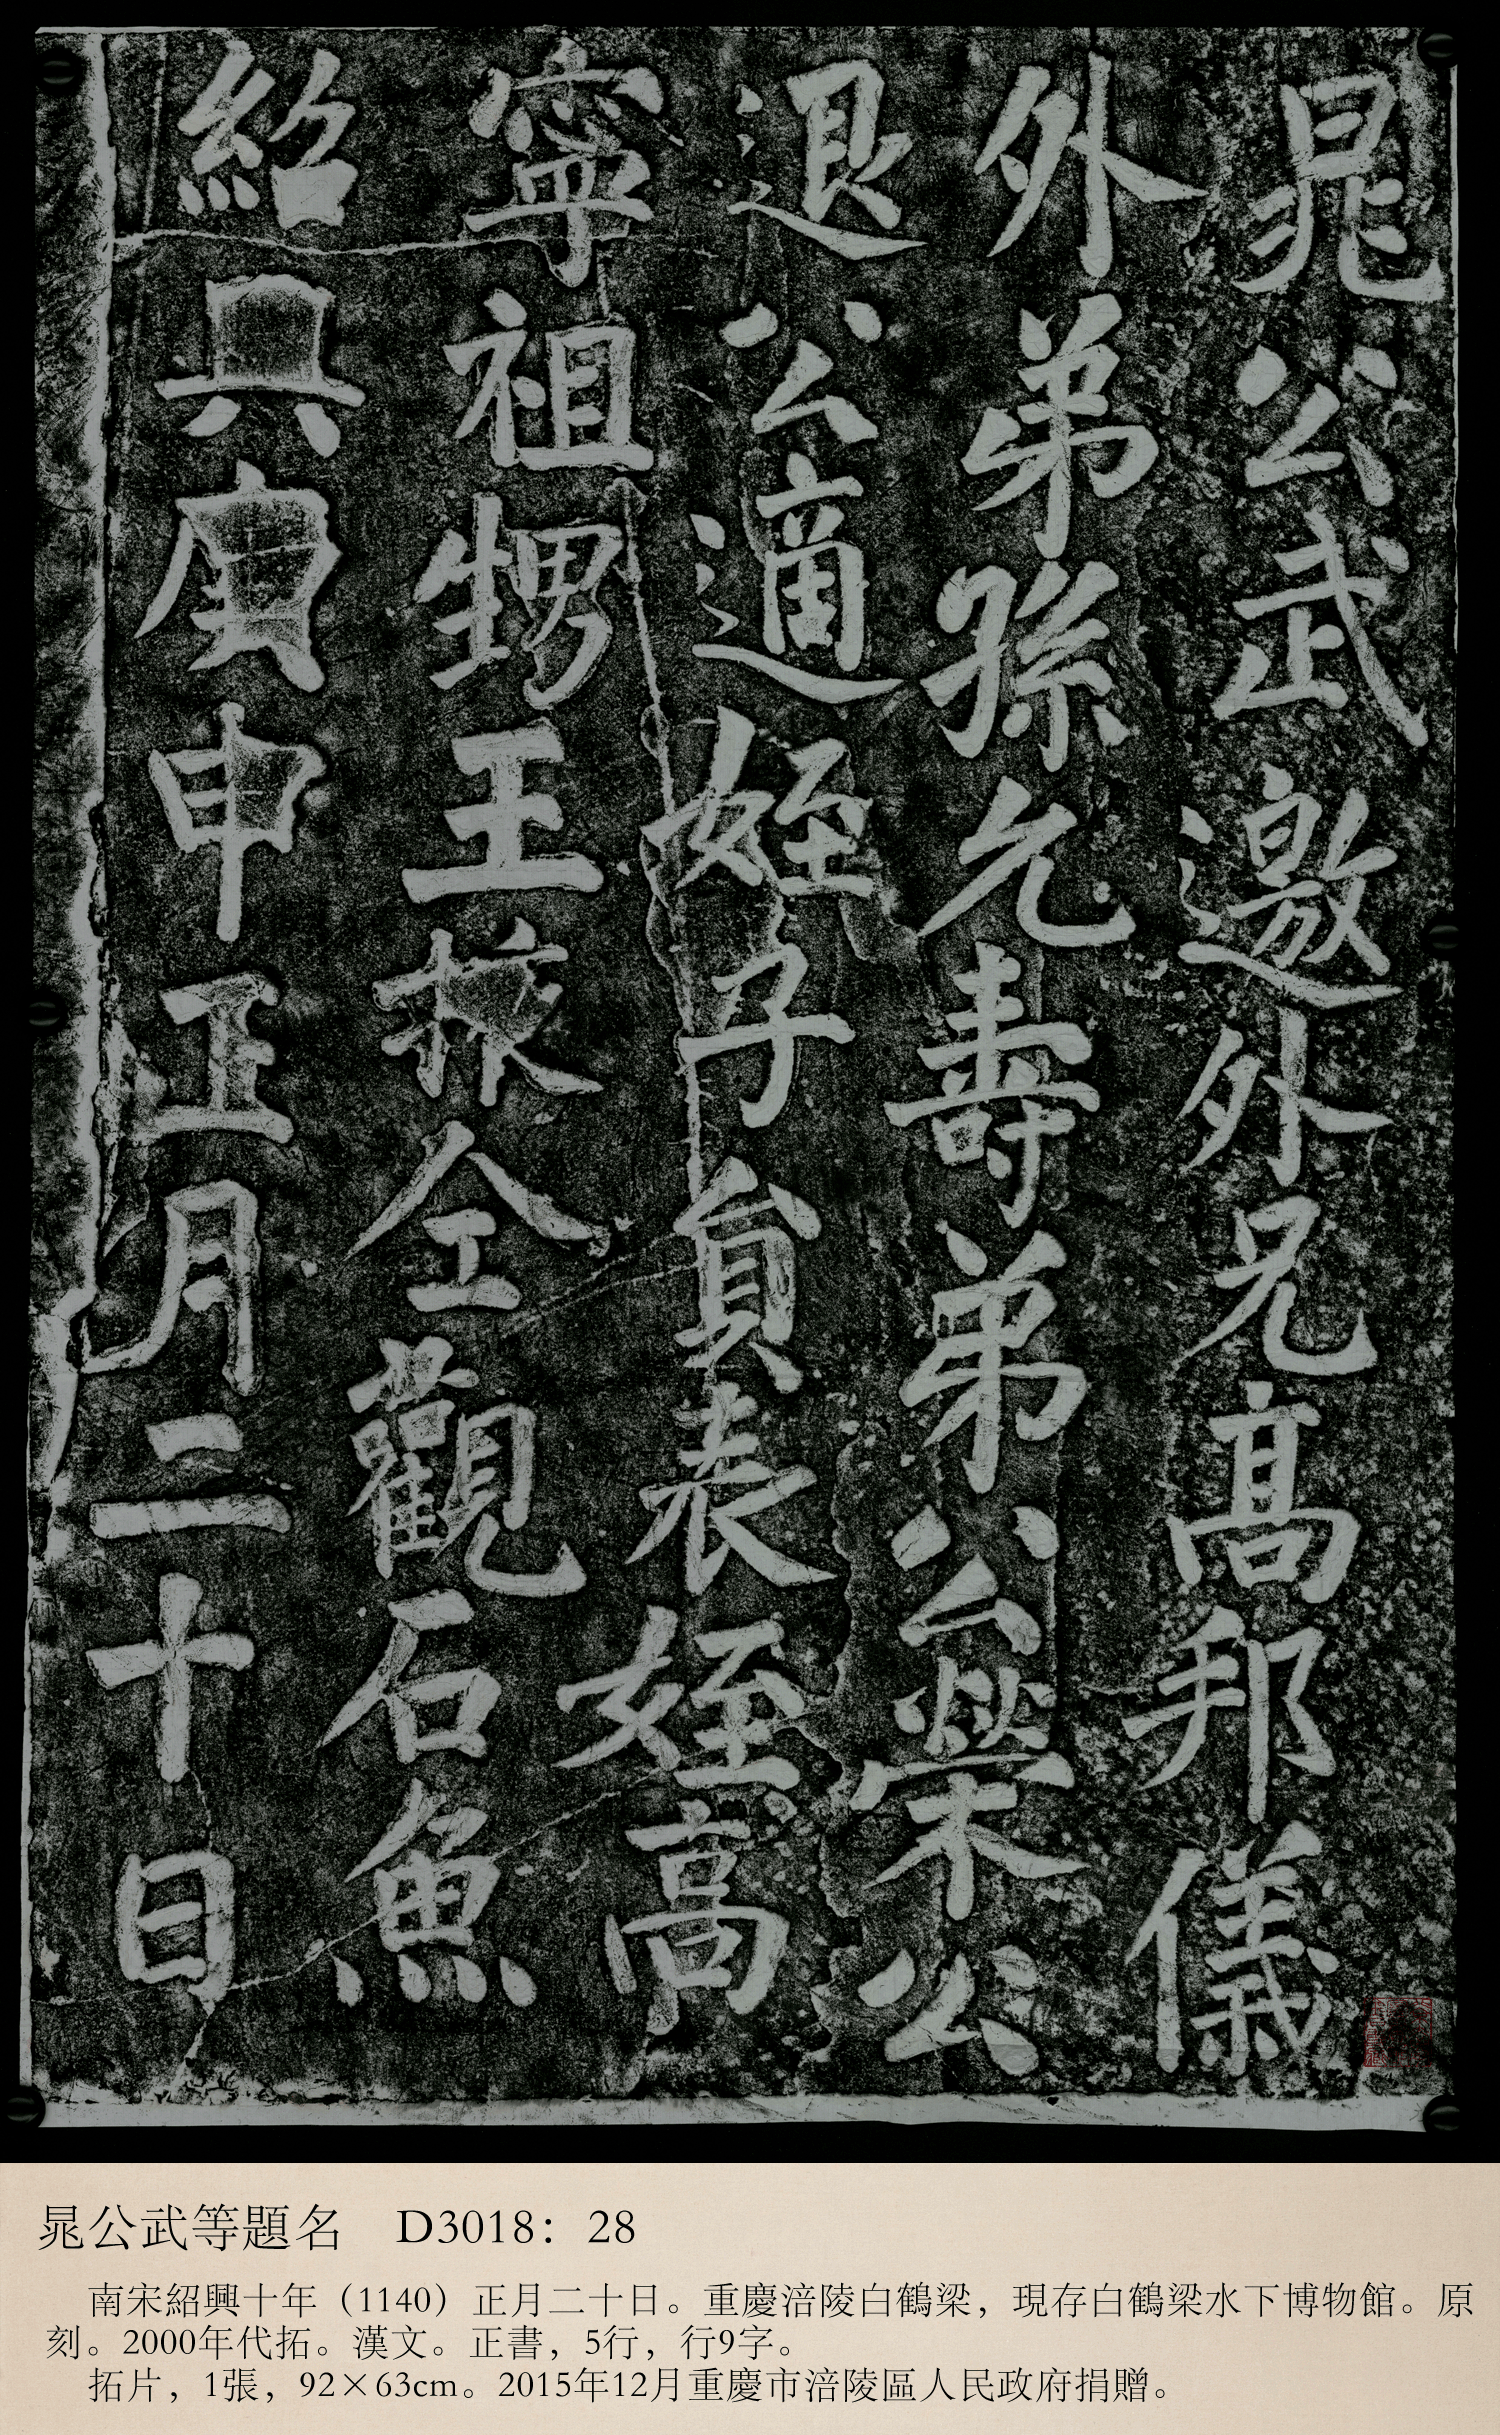 晁公武邀外兄高邦儀
外弟孫允壽弟公榮公
退公適姪子員表姪高
寧祖甥王掖仝觀石魚
紹興庚申正月二十日
晁公武等題名　D3018：28
南宋紹興十年（1140）正月二十日。重慶涪陵白鶴梁，現存白鶴梁水下博物館。原
刻。2000年代拓。漢文。正書，5行，行9字。
拓片，1張，92×63cm。2015年12月重慶市涪陵區人民政府捐贈。